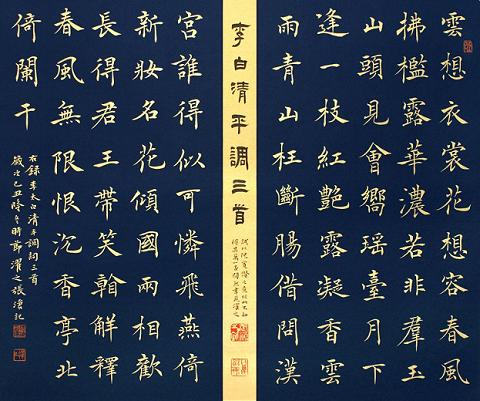 雲想衣裳花想容春風
拂檻露華濃若非羣玉
山頭見會嚮瑶臺月下
逢一枝紅艷露凝香雲
雨青山枉斷腸借問漢
李白清平調三首
宮誰得似可憐飛燕倚
新妝名花傾國兩相歡
長得君王帶笑翰解釋
春風無限恨沉香亭北
倚闌干
右録李太白清平調詞三首
歲次己丑隆冬時節濯之張記